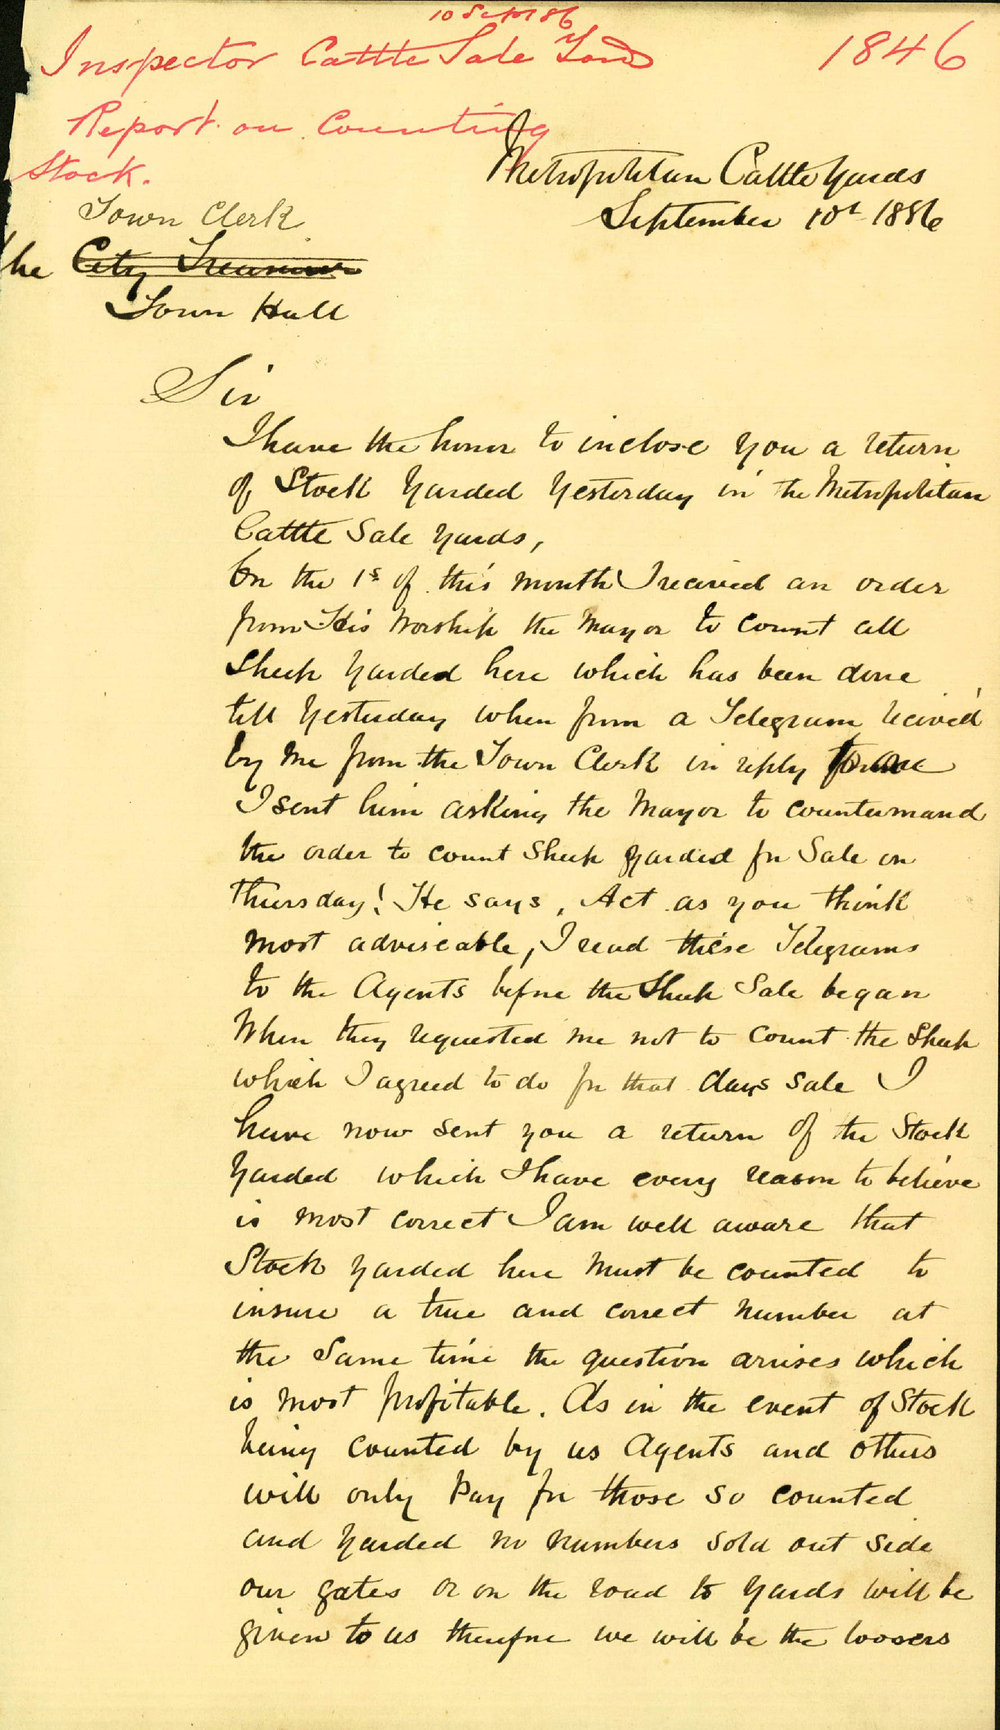 10 Sept 86
Inspector Cattle Sale Yard 1846
Report on Counting
Stock.
Metropolitan Cattle Yards
September 10th 1886
Town Clerk
The City Treasurer
Town Hall
Sir
I have the honor to inclose you a return
of Stock Yarded Yesterday in the Metropolitan
Cattle Sale Yards,
On the 1st of this month I received an order
from His Worship the Mayor to count all
Sheep Yarded here which has been done
till Yesterday when from a Telegram recived
by me from the Town Clerk in reply to one
I sent him asking the Mayor to countermand
the order to count Sheep Yarded for Sale on
Thursday! He says, Act as you think
most adviseable, I read these Telegrams
to the Agents before the Sheep Sale began
When they requested me not to count the Sheep
which I agreed to do for that days sale I
have now sent you a return of the Stock
Yarded which I have every reason to believe
is most correct I am well aware that
Stock Yarded here must be counted to
insure a true and correct number at
the Same time the question arrises which
is most profitable. As in the event of Stock
being counted by us Agents and others
will only Pay for those so counted
and Yarded no numbers sold out side
our gates or on the road to Yards will be
given to us therefore we will be the loosers